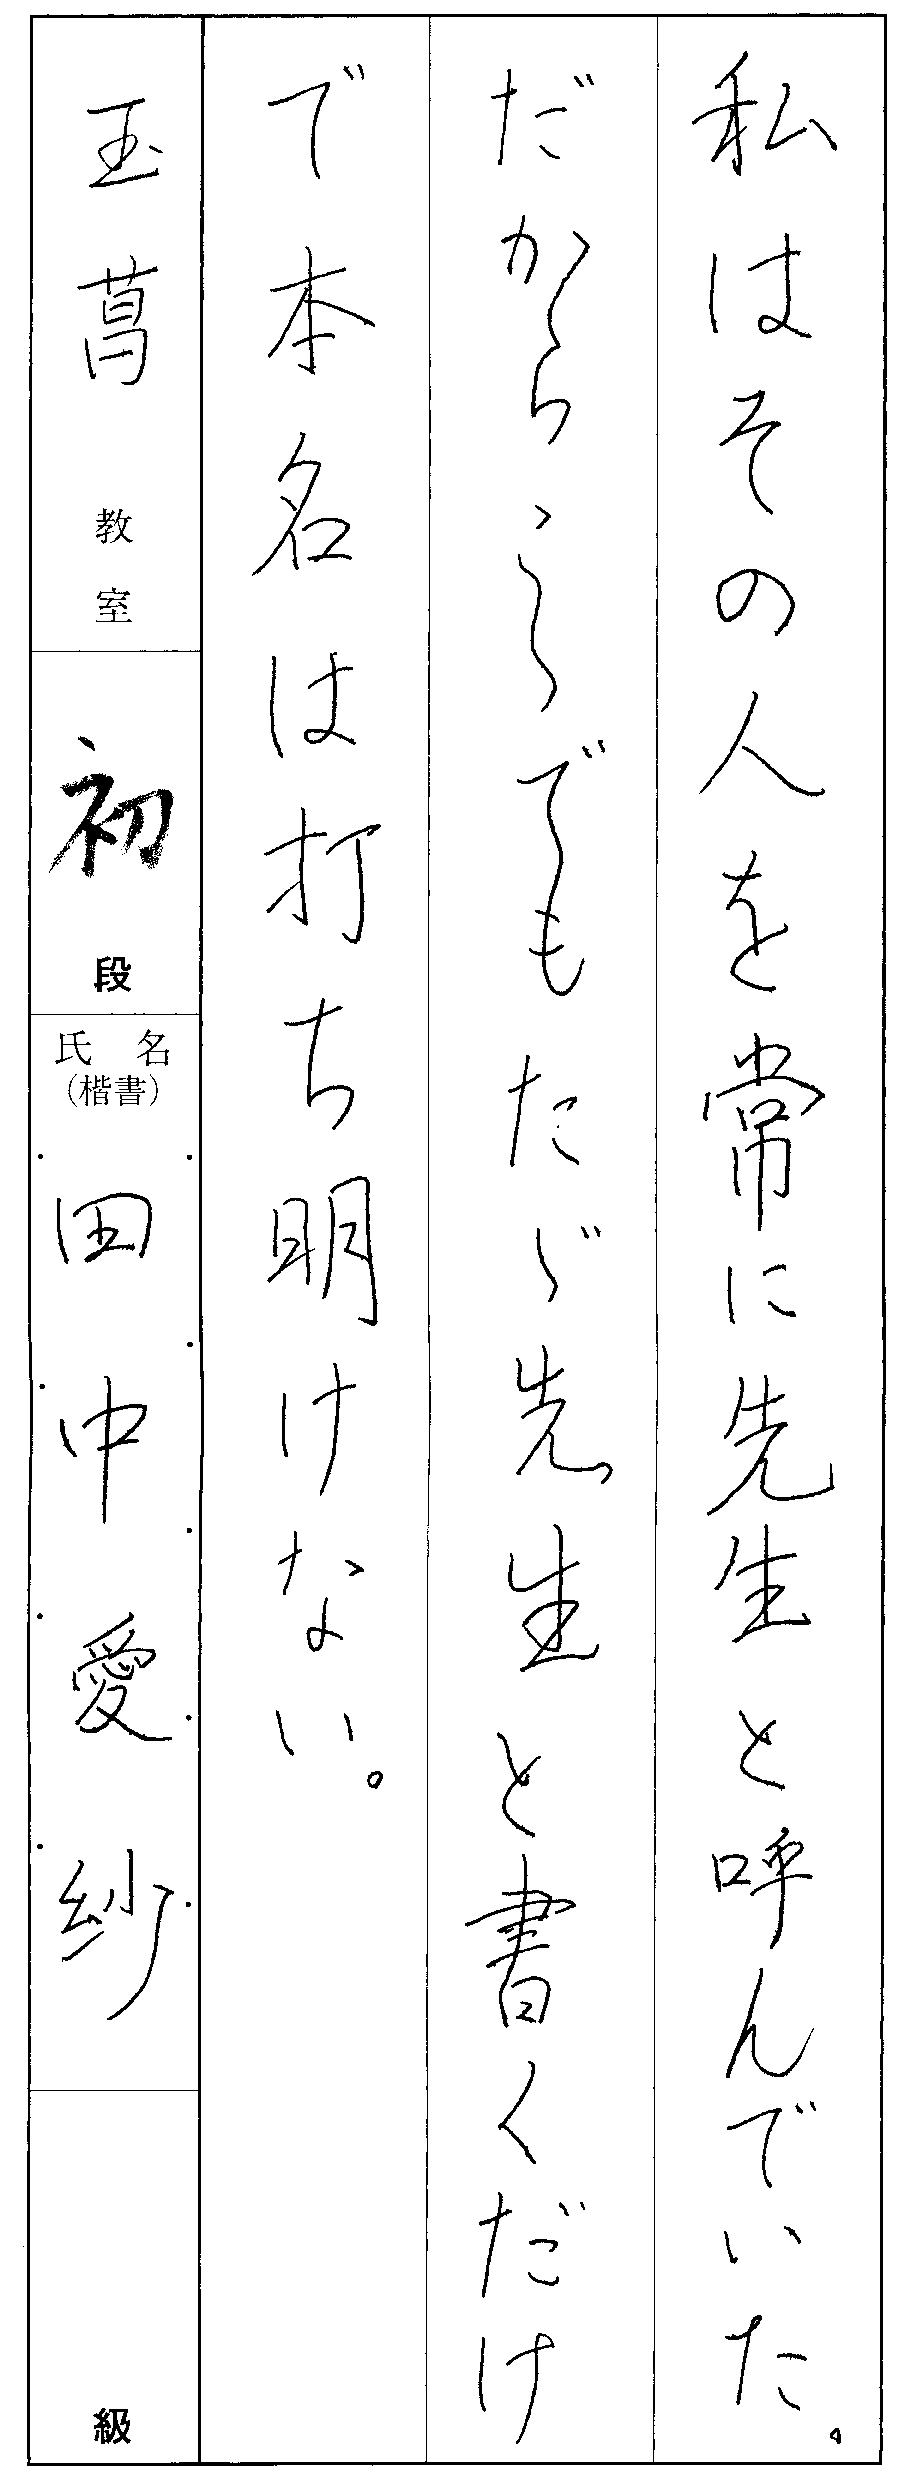 私はその人を常に先生と呼んでいた。
だからこゝでもたゞ先生と書くだけ
で本名は打ち明けない。
玉葛教室
初段
氏名
（楷書）
田中愛紗
級